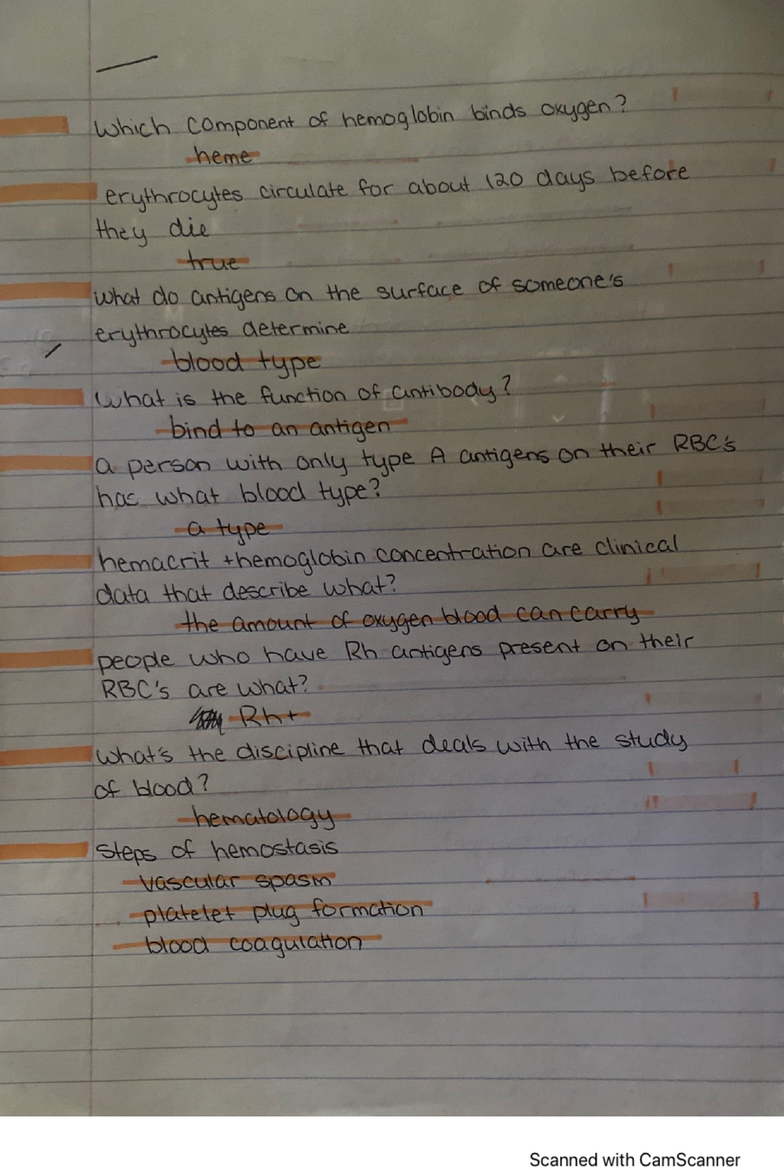 which component of hemoglobin binds oxygen?
heme
erythrocytes circulate for about 120 days before
they die
true
what do antigens on the surface of someone's
erythrocytes determine
blood type
what is the function of antibody?
bind to an antigen
a person with only type A antigens on their RBC's
has what blood type?
a type
hemacrit + hemoglobin concentration are clinical
data that describe what?
the amount of oxygen blood can carry
people who have Rh antigens present on their
RBC's are what?
Rh+
what's the discipline that deals with the study
of blood?
hematology
steps of hemostasis
vascular spasm
platelet plug formation
blood coagulation
Scanned with CamScanner